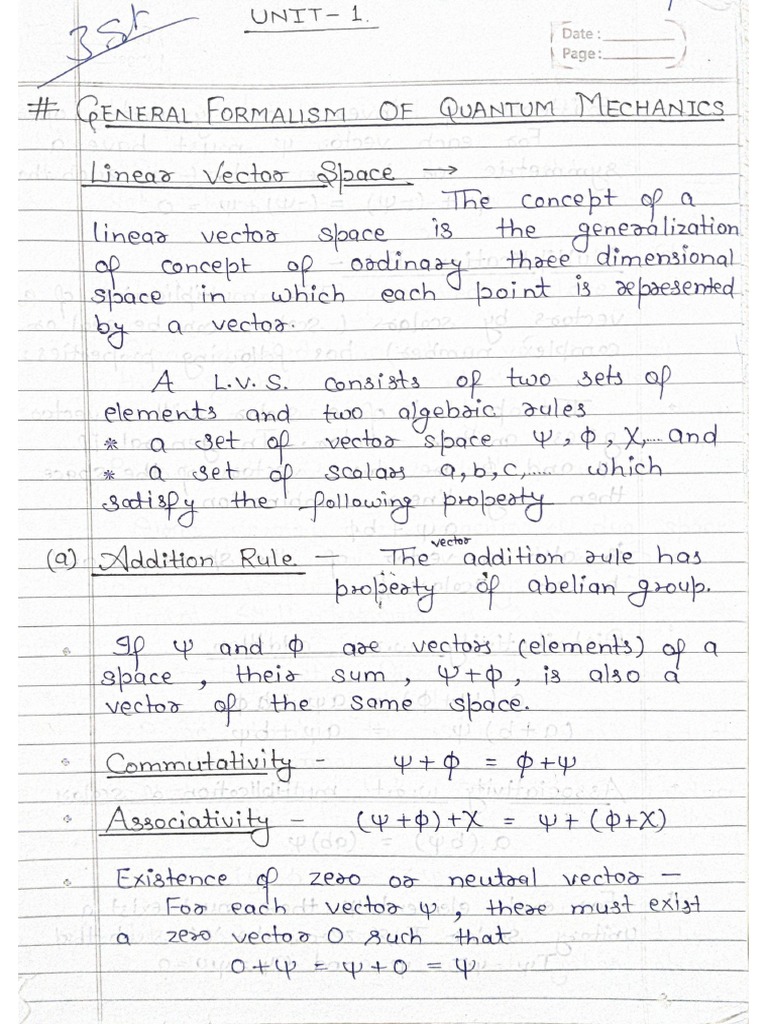 3St
UNIT-1.
Date:
Page:
# GENERAL FORMALISM OF QUANTUM MECHANICS
Linear Vector Space →
The concept of a
linear vector space is the generalization
of concept of ordinary three dimensional
space in which each point is represented
by a vector.
A L.V.S. consists of two sets of
elements and two algebric rules
* a set of vector space Ψ, Φ, X,... and
* a set of scalars a, b, c,..... which
satisfy the following property
(a) Addition Rule - The vector addition rule has
property of abelian group.
If Ψ and Φ are vectors (elements) of a
space, their sum, Ψ+Φ, is also a
vector of the same space.
Commutativity - Ψ+Φ = Φ+Ψ
Associativity - (Ψ+Φ)+X = Ψ+(Φ+X)
Existence of zero or neutral vector -
For each vector Ψ, there must exist
a zero vector 0 such that
0+Ψ = Ψ+0 = Ψ